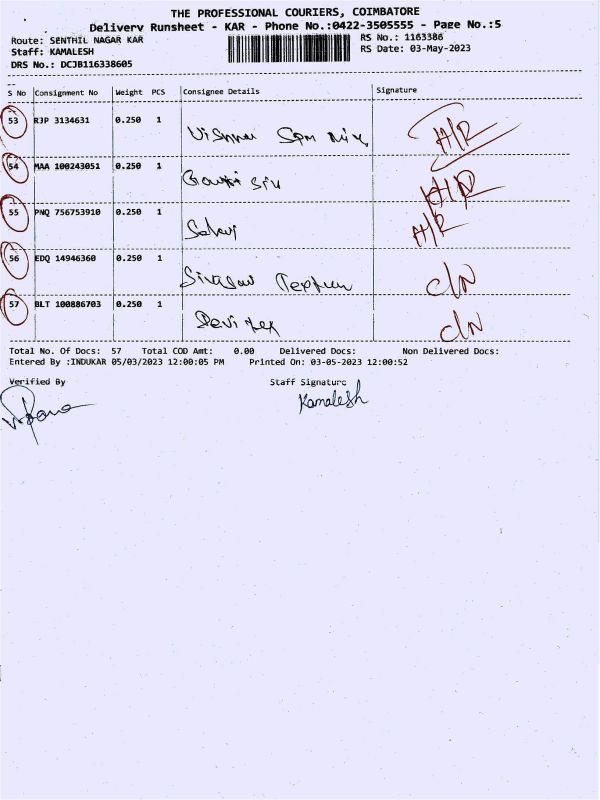 THE PROFESSIONAL COURIERS, COIMBATORE
Delivery Runsheet - KAR - Phone No.:0422-3505555 - Page No.:5
Route: SENTHIL NAGAR KAR
RS No.: 1163386
Staff: KAMALESH
RS Date: 03-May-2023
DRS No.: DCJB116338605
S No Consignment No Weight PCS Consignee Details Signature
53 RJP 3134631 0.250 1
H/R
54 MAA 100243051 0.250 1
H/R
55 PNQ 756753910 0.250 1
H/R
56 EDQ 14946360 0.250 1
C/N
57 BLT 100886703 0.250 1
C/N
Total No. Of Docs: 57 Total COD Amt: 0.00 Delivered Docs: Non Delivered Docs:
Entered By :INDUKAR 05/03/2023 12:00:05 PM Printed On: 03-05-2023 12:00:52
Verified By Staff Signature
Kamalesh